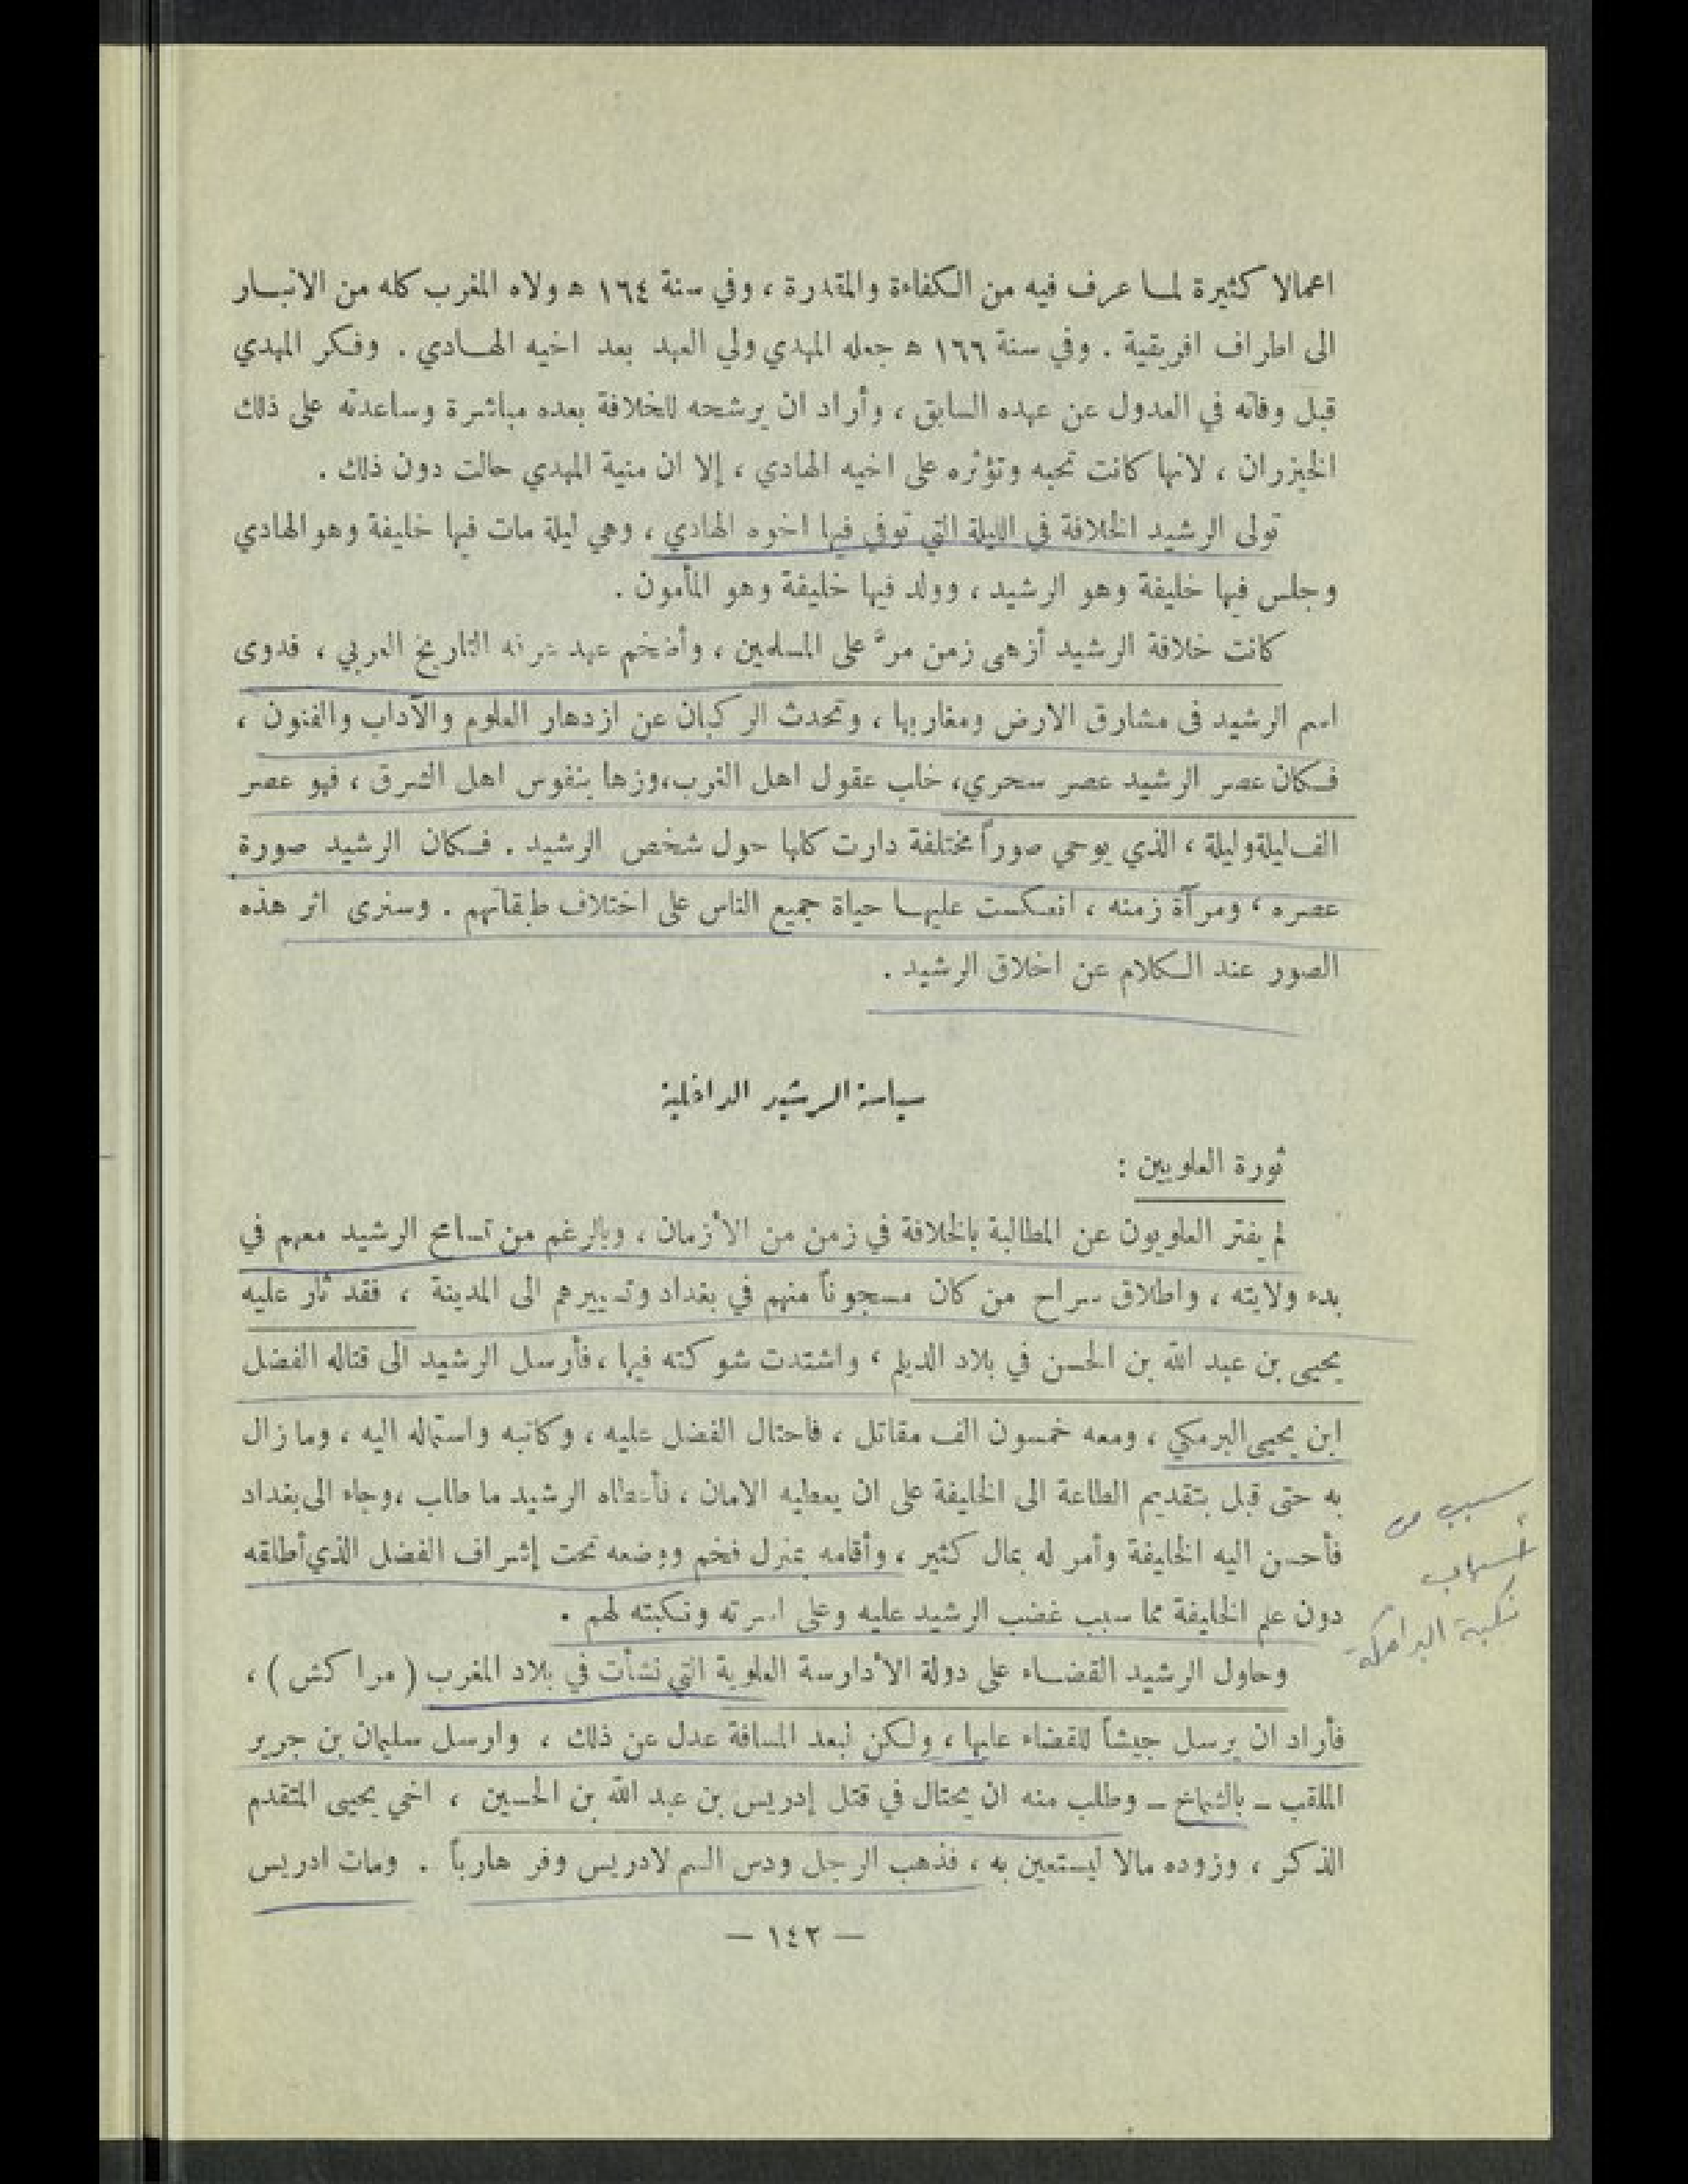 اعمالا كثيرة لما عرف فيه من الكفاءة والمقدرة ، وفي سنة ١٦٤ ه ولاه المغرب كله من الانبار
الى اطراف افريقية . وفي سنة ١٦٦ ه جعله المهدي ولي العهد بعد اخيه الهادي . وفكر المهدي
قبل وفاته في العدول عن عهده السابق ، وأراد ان يرشحه للخلافة بعده مباشرة وساعدته على ذلك
الخيزران ، لانها كانت تحبه وتؤثره على اخيه الهادي ، إلا ان منية المهدي حالت دون ذلك .
تولى الرشيد الخلافة في الليلة التي توفي فيها اخوه الهادي ، وهي ليلة مات فيها خليفة وهو الهادي
وجلس فيها خليفة وهو الرشيد ، وولد فيها خليفة وهو المأمون .
كانت خلافة الرشيد أزهى زمن مرَّ على المسلمين ، وأضخم عهد عرفه التاريخ العربي ، فدوى
اسم الرشيد في مشارق الارض ومغاربها ، وتحدث الركبان عن ازدهار العلوم والآداب والفنون ،
فكان عصر الرشيد عصر سحري، خلب عقول اهل الغرب،وزها بنفوس اهل الشرق ، فهو عصر
الف ليلة وليلة ، الذي يوحي صوراً مختلفة دارت كلها حول شخص الرشيد . فكان الرشيد صورة
عصره ، ومرآة زمنه ، انعكست عليها حياة جميع الناس على اختلاف طبقاتهم . وسنرى اثر هذه
الصور عند الكلام عن اخلاق الرشيد .
سياسة الرشيد الداخلية
ثورة العلويين :
لم يفتر العلويون عن المطالبة بالخلافة في زمن من الأزمان ، وبالرغم من تسامح الرشيد معهم في
بدء ولايته ، واطلاق سراح من كان مسجوناً منهم في بغداد وتسييرهم الى المدينة ، فقد ثار عليه
يحيى بن عبد الله بن الحسن في بلاد الديلم ، واشتدت شوكته فيها ، فأرسل الرشيد الى قتاله الفضل
ابن يحيى البرمكي ، ومعه خمسون الف مقاتل ، فاحتال الفضل عليه ، وكاتبه واستماله اليه ، وما زال
به حتى قبل بتقديم الطاعة الى الخليفة على ان يعطيه الامان ، فأعطاه الرشيد ما طلب ،وجاء الى بغداد
فأحسن اليه الخليفة وأمر له بمال كثير ، وأقامه بمنزل فخم ووضعه تحت إشراف الفضل الذي أطلقه
دون علم الخليفة مما سبب غضب الرشيد عليه وعلى اسرته ونكبته لهم .
سبب من
أسباب
نكبة البرامكة
وحاول الرشيد القضاء على دولة الأدارسة العلوية التي نشأت في بلاد المغرب ( مراكش ) ،
فأراد ان يرسل جيشاً للقضاء عليها ، ولكن لبعد المسافة عدل عن ذلك ، وارسل سليمان بن جرير
الملقب – بالشماخ – وطلب منه ان يحتال في قتل إدريس بن عبد الله بن الحسين ، اخي يحيى المتقدم
الذكر ، وزوده مالا ليستعين به ، فذهب الرجل ودس السم لادريس وفر هارباً . ومات ادريس
— ١٤٣ —